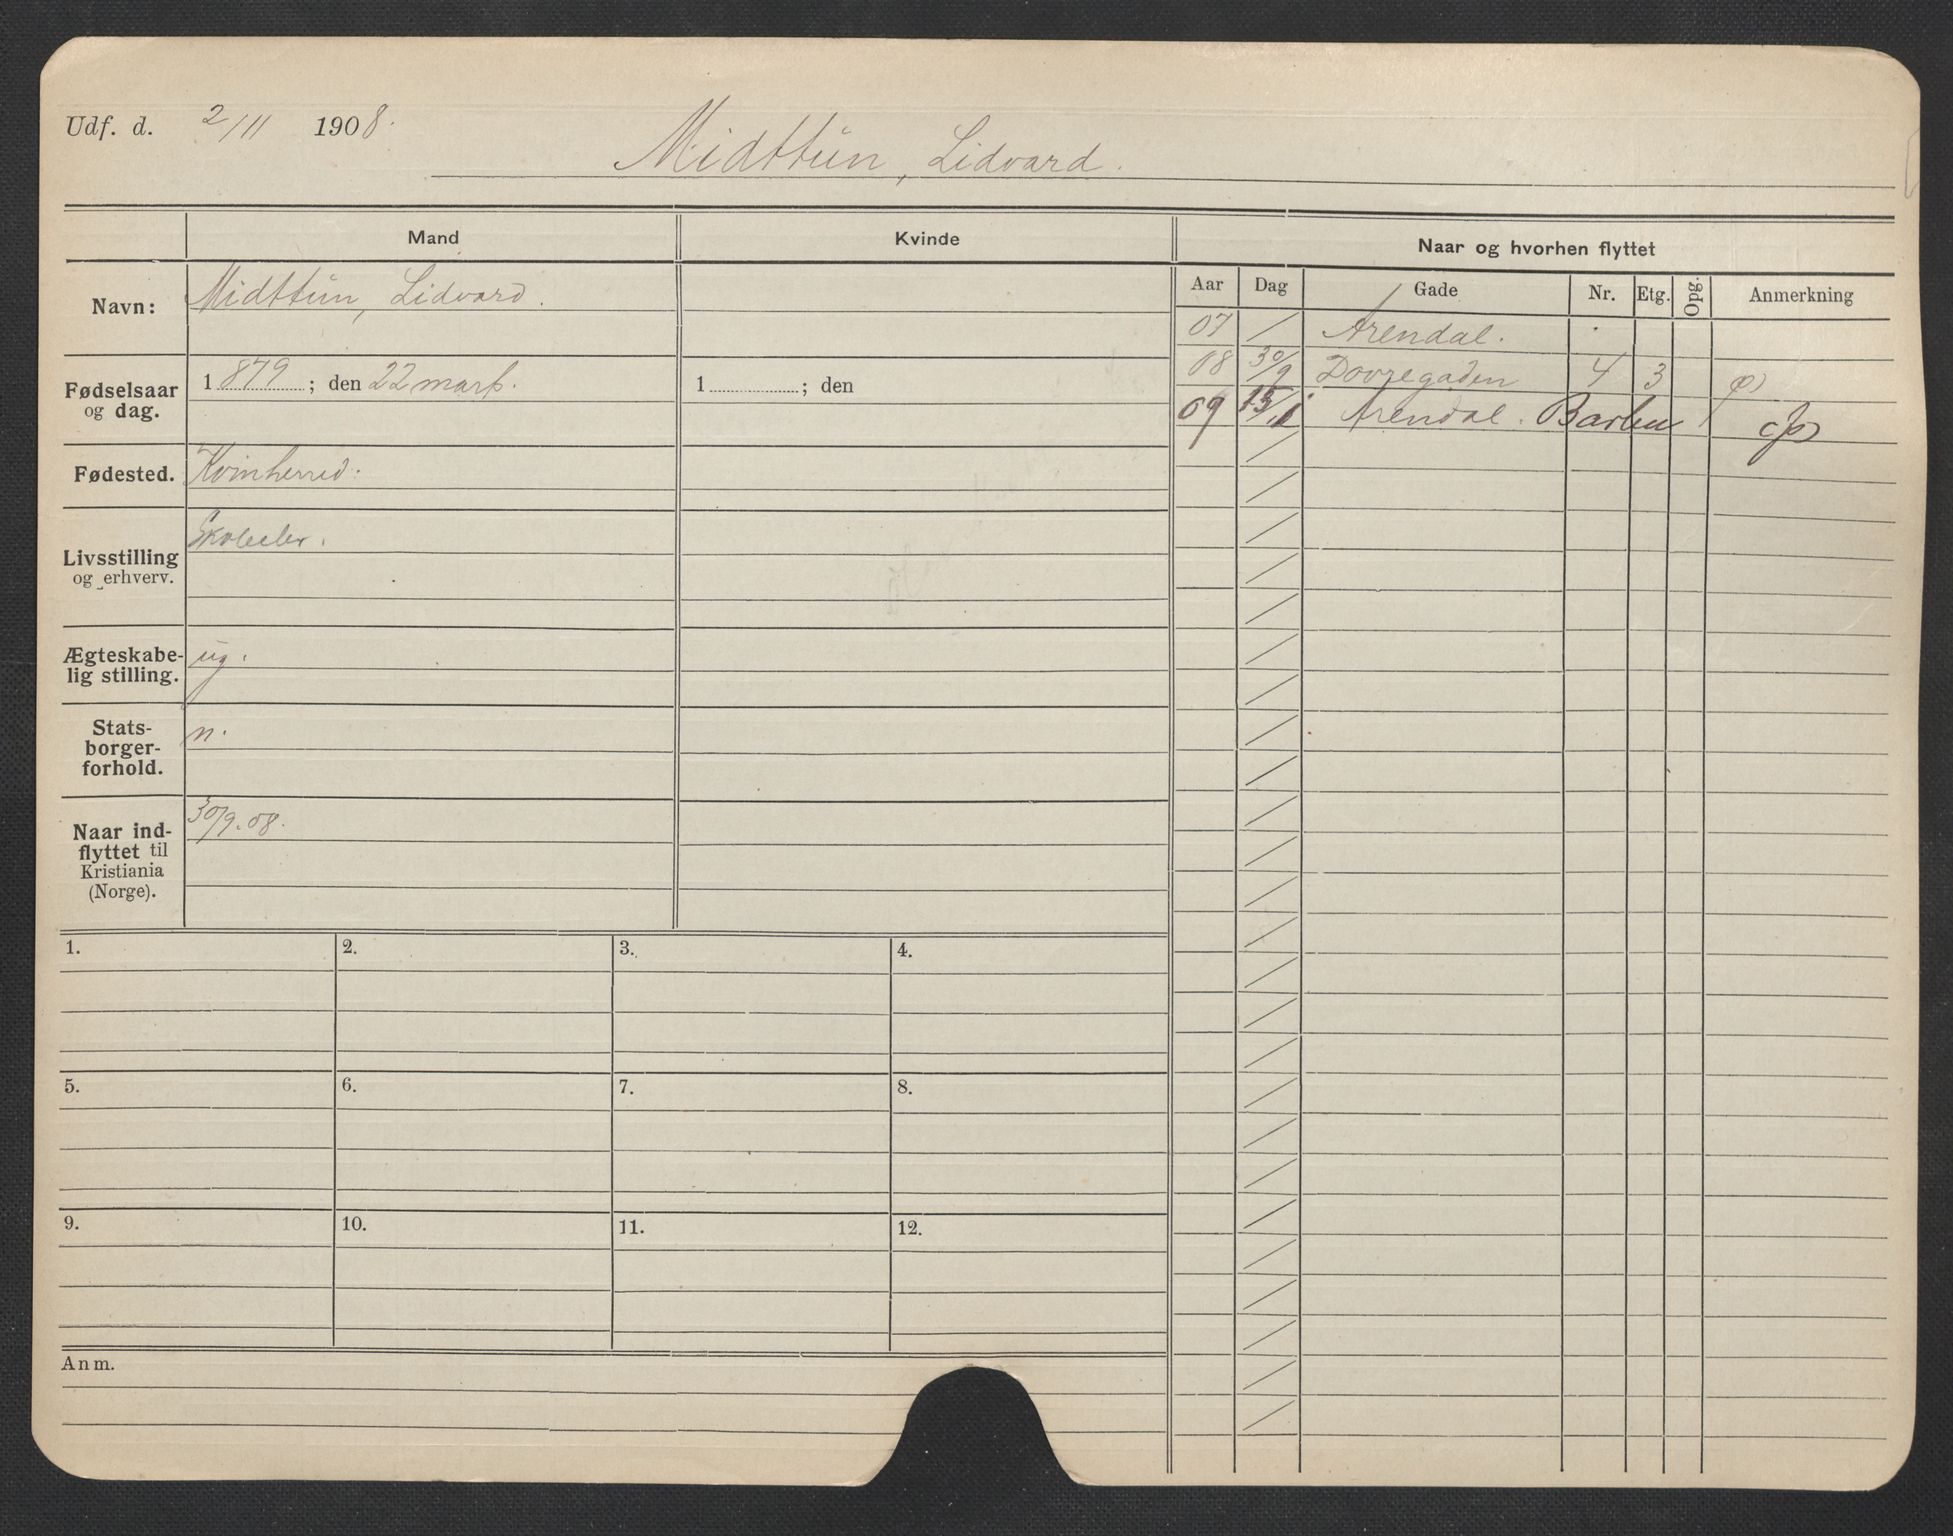 Udf. d. 2/11 1908.
Midttun, Lidvard.
Mand
Kvinde
Naar og hvorhen flyttet
Navn:
Midttun, Lidvard.
Fødselsaar og dag.
1879; den 22 mars.
1 ; den
Fødested.
Kvinherred.
Livsstilling og erhverv.
Ægteskabe-
lig stilling.
ug.
Stats-
borger-
forhold.
n.
Naar ind-
flyttet til
Kristiania
(Norge).
30/9.08.
Aar Dag Gade Nr. Etg. Opg. Anmerkning
07 / Arendal.
08 30/9 Dovregaden 4 3
09 15/1 Arendal.
1. 2. 3. 4.
5. 6. 7. 8.
9. 10. 11. 12.
Anm.